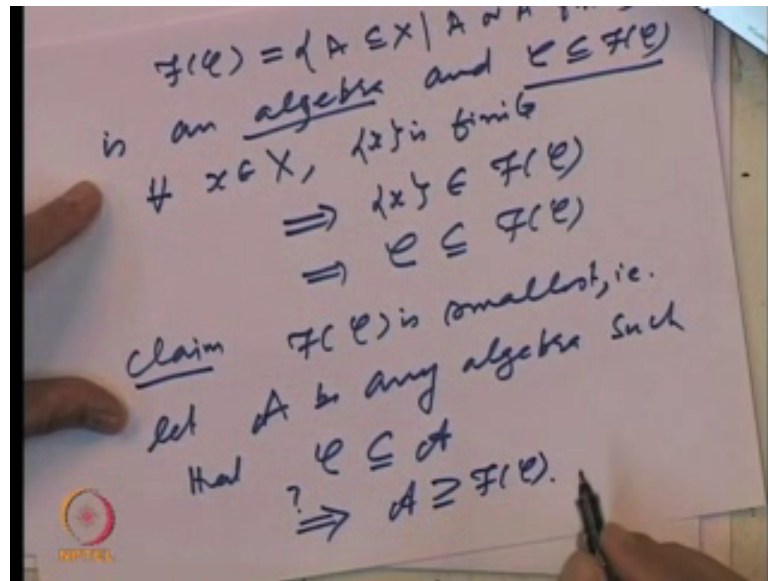 F(C) = {A ⊆ X | A or Aᶜ
is an algebra and C ⊆ F(C)
∀ x ∈ X, {x} is finite
⟹ {x} ∈ F(C)
⟹ C ⊆ F(C)
Claim F(C) is smallest, i.e.
let A be any algebra such
that C ⊆ A
? ⟹ A ⊇ F(C).
NPTEL